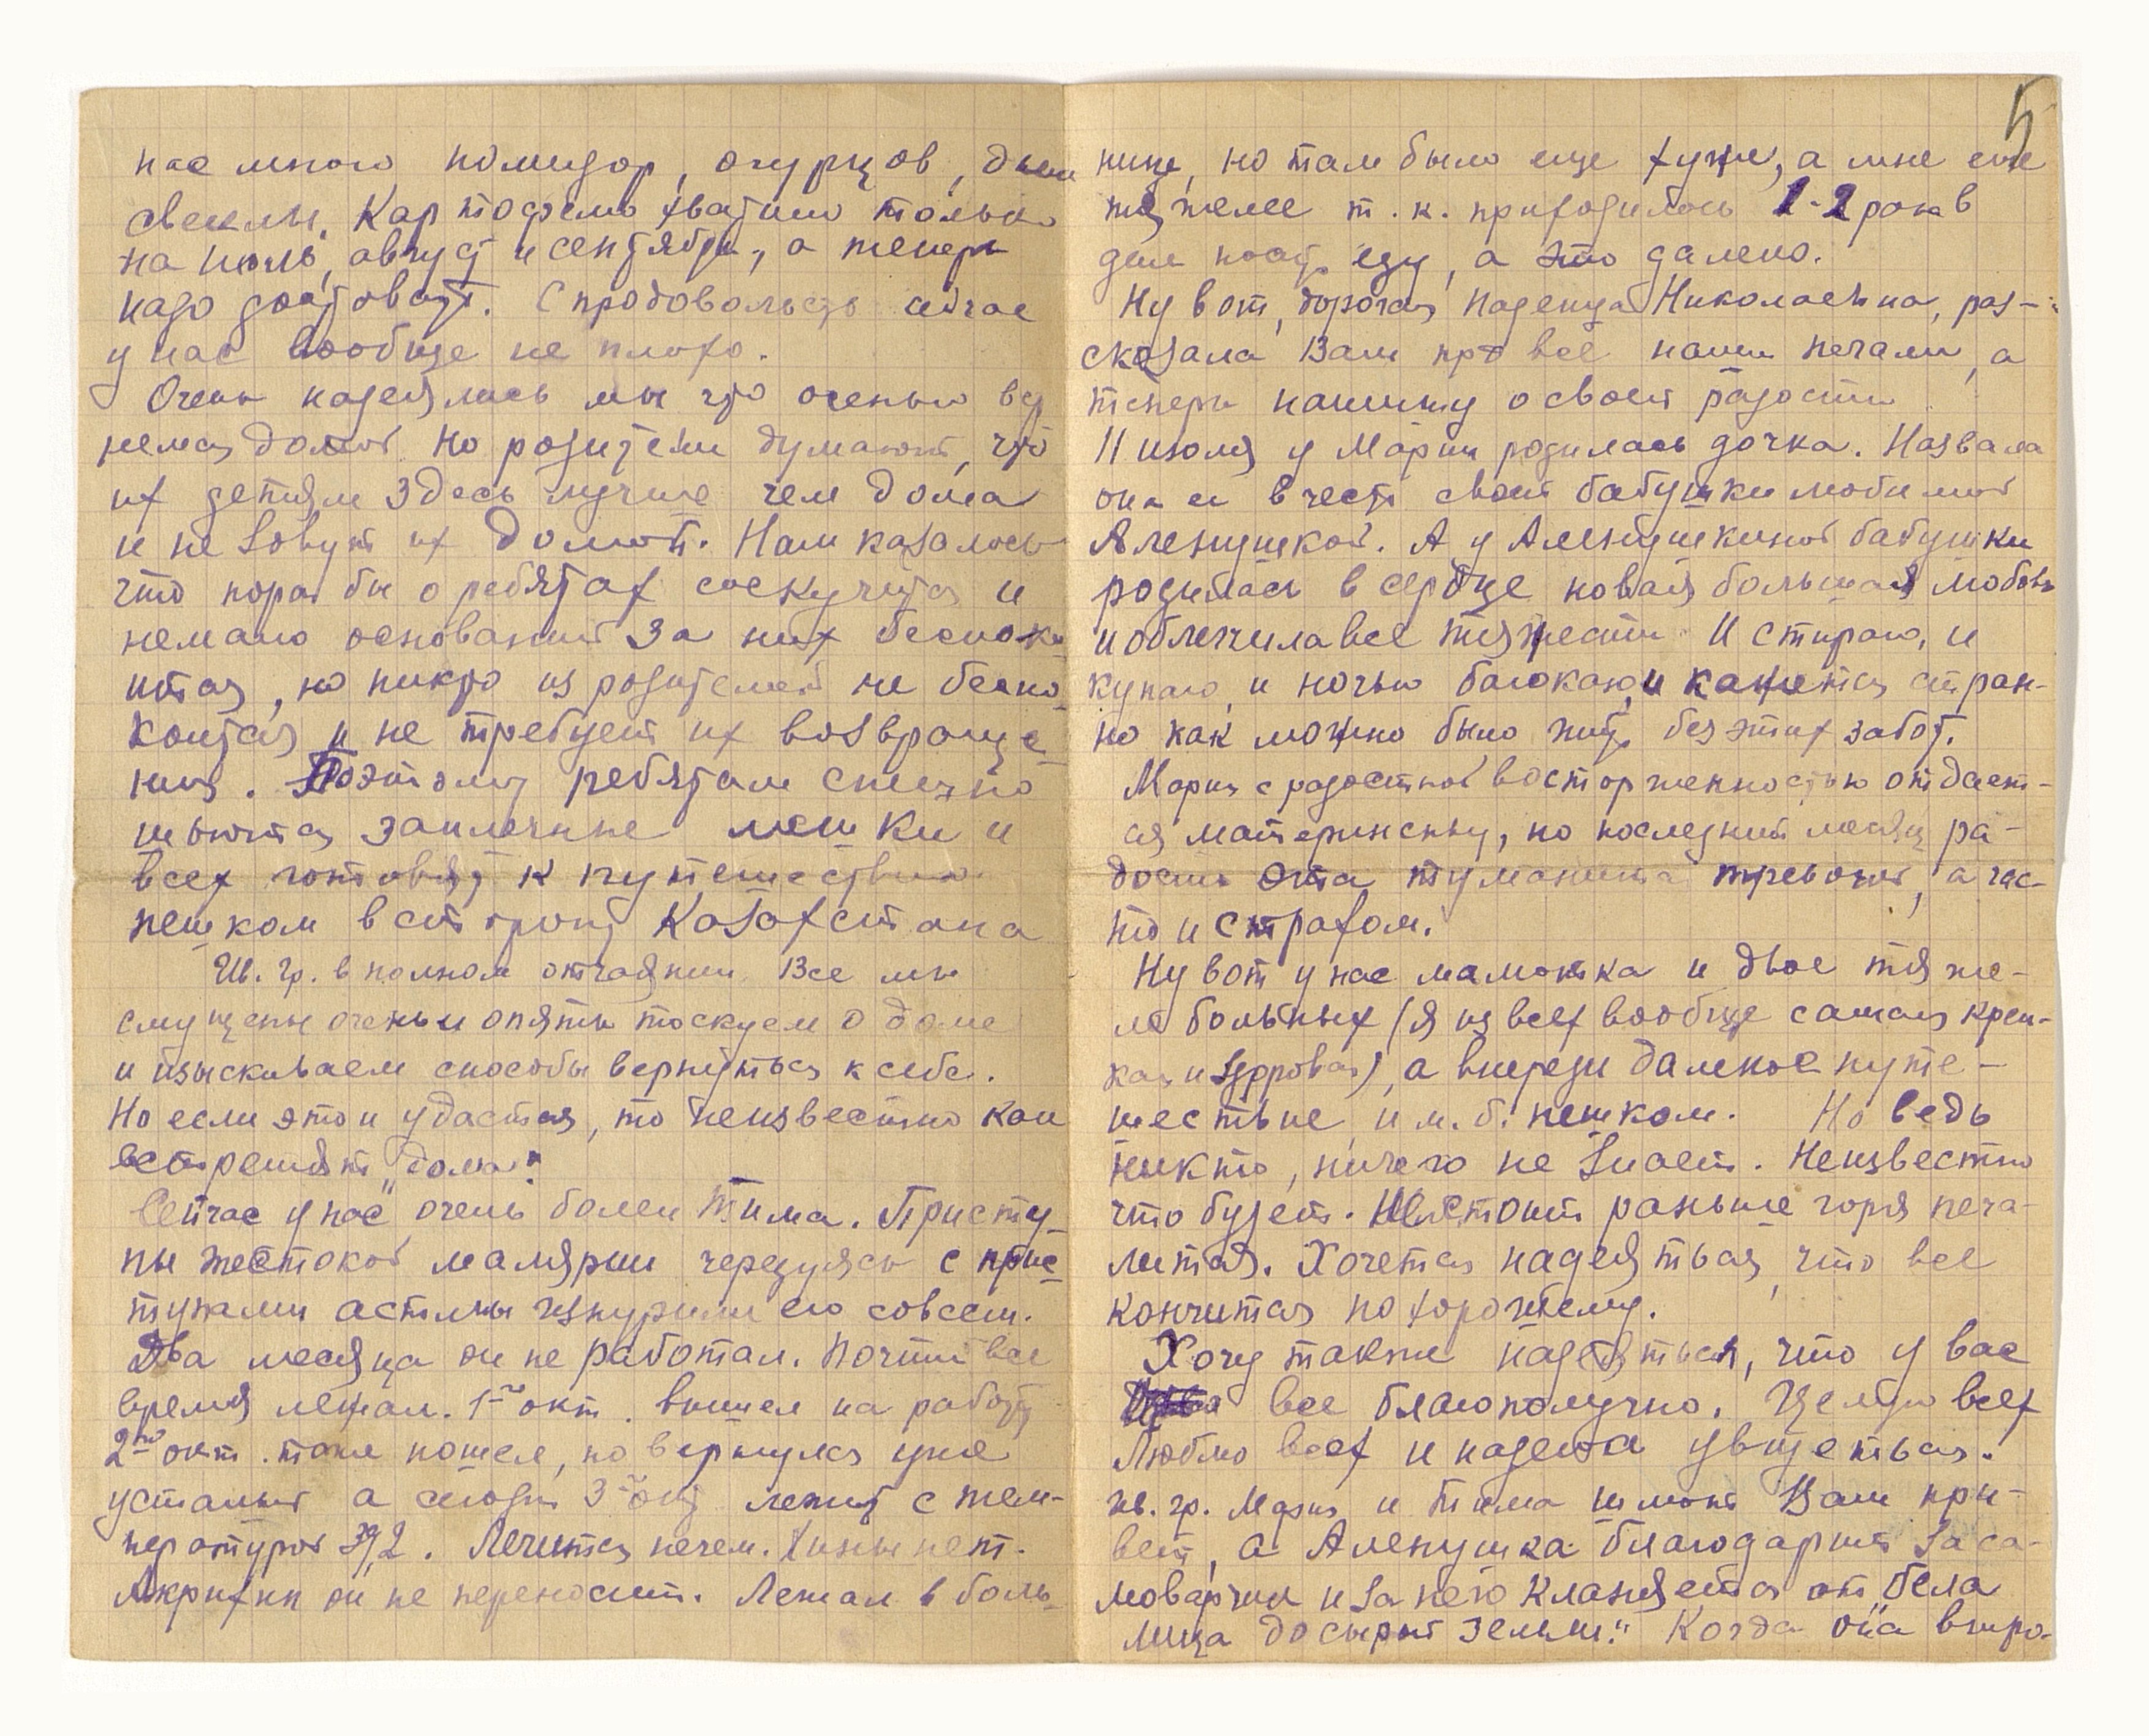 нас много помидор, огурцов, дынь
свеклы. Картофелю хватило только
на июль, август и сентябрь, а теперь
надо доставать. С продовольств сейчас
у нас вообще не плохо.
Очень надеялись мы что осенью вер
немся домой. Но родители думают, что
их детям здесь лучше чем дома
и не зовут их домой. Нам казалось
что пора бы о ребятах соскучится и
немало оснований за них беспоко
ится, но никто из родителей не беспо
коится и не требует их возвраще-
ния. Поэтому ребятам спешно
шьются заплечные мешки и
всех готовят к путешествию
пешком в сторону Казахстана
Ив. Гр. в полном отчаянии. Все мы
смущены очень и опять тоскуем о доме
и изыскиваем способы вернуться к себе.
Но если это и удастся, то неизвестно как
встретят „дома"
Сейчас у нас очень болен Тима. Присту-
пы жестокой малярии чередуясь с прис-
тупами астмы изнурили его совсем.
Два месяца он не работал. Почти все
время лежал. 1го окт. вышел на работу
2го окт. тоже пошел, но вернулся уже
усталый а сегодня 3го окт лежит с тем-
пературой 39,2. Лечится нечем. Хины нет.
Акрихин он не переносит. Лежал в боль-
5
нице, но там было еще хуже, а мне еще
тяжелее т.к. приходилось 1-2 раза в
день носить еду, а это далеко.
Ну вот, дорогая Надежда Николаевна, раз-
сказала Вам про все наши печали, а
теперь напишу о своей радости
11 июля у Марии родилась дочка. Назвала
она ее в честь своей бабушки любимой
Аленушкой. А у Аленушкиной бабушки
родилась в сердце новая большая любовь
и облегчила все тяжести. И стираю, и
купаю, и ночью баюкаю, и кажется стран-
но как можно было жить без этих забот.
Мария с радостной восторженностью отдает-
ся материнству, но последний месяц ра-
дость эта туманится тревогой, а час-
то и страхом.
Ну вот у нас мамашка и двое тяже-
ло больных (я из всех вообще самая креп-
кая и здоровая), а впереди далекое путе-
шествие, и м.б. пешком. Но ведь
никто, ничего не знает. Неизвестно
что будет. Не стоит раньше горя печа-
литься. Хочется надеяться, что все
кончится по хорошему.
Хочу также надеяться, что у вас
все благополучно. Целую всех
Люблю всех и надеюсь увидеться.
Ив. Гр. Мария и Тима шлют Вам при-
вет, а Аленушка благодарит за са-
моварчик и за него кланяется от „бела
лица до сырой земли." Когда она выро-